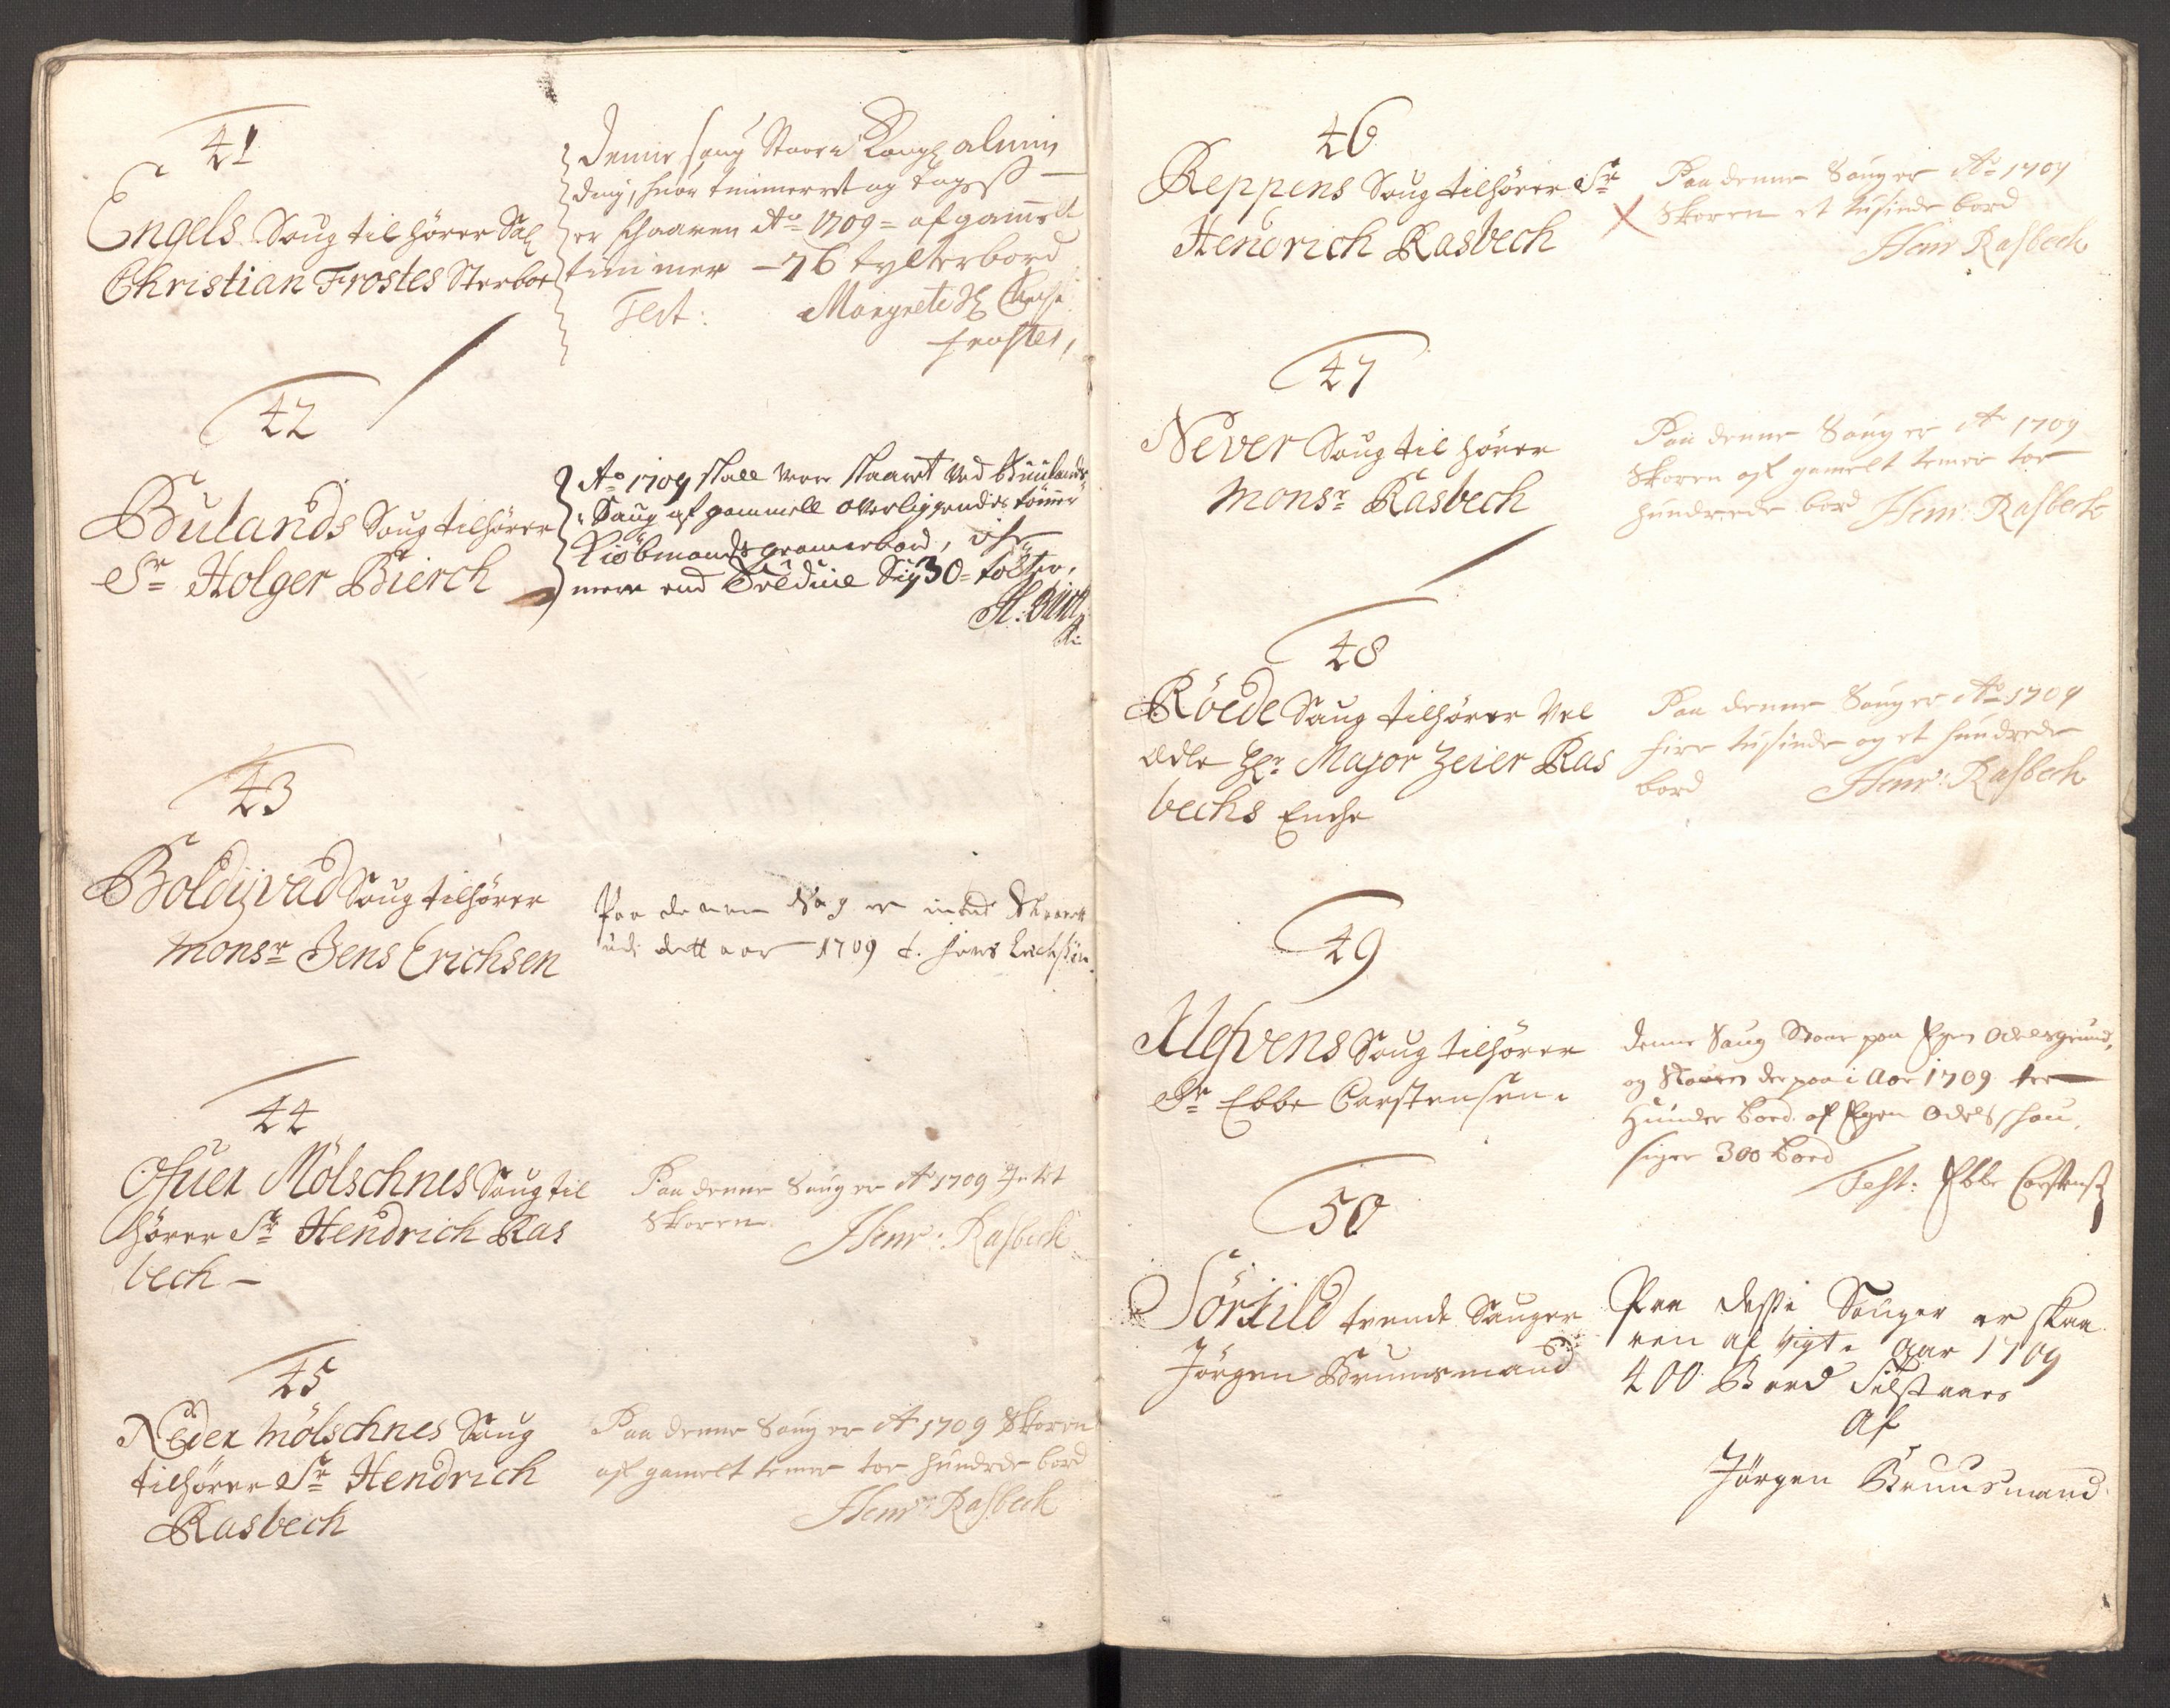 41
Engels Saug tilhører Sal
Christian Frostes Sterboe
Denne saug Staar i Kongl almin
ding, hvor timmerret og tages
er schaaren Ao 1709 = af gammelt
timmer - 76 tylterbord
Test: Margrete Sl Christ
Frostes,
42
Bulands Saug tilhører
Sr Holger Bierch
Ao 1709 skall vere skaaret ved Buulands
Saug af gammell overliggendes tømmer
Kiøbmands bord,
mere end Tredive Siger 30 = tolter,
H: Birch
43
Boldizvad Saug tilhører
Monsr Jens Erichsen
Paa denne Sag er intet Skaarett
udi dette aar 1709 t. Jens Erichsen
44
Ofuer Mölschnes Saug til
hører Sr Hendrich Kas
bech -
Paa denne Saug er Ao 1709 Intet
Skoren.
Henr: Kasbech
45
Neder Mölschnes Saug
tilhører Sr Hendrich
Kasbech
Paa denne Saug er Ao 1709 Skoren
af gamelt temer toe hundrde bord
Henr: Kasbech
46
Reppens Saug tilhører Sr
Hendrich Kasbech
Paa denne Saug er Ao 1709
Skoren et tusinde bord
Henr Kasbech
47
Never Saug til hører
Monsr Kasbech
Paa denne Saug er Ao 1709
Skoren af gamelt temer toe
hundrede bord Henr: Kasbech
48
Röede Saug tilhører Vel
Edle Hr. Major Zeier Kas
bechs Enche
Paa denne Saug er Ao 1709
fire tusinde og et hundrede
bord Henr: Kasbech
49
Saug tilhører
Sr Ebbe Carstensen.
Denne Saug Staar paa Egen Odelsgrund,
og Skaaren der paa i Aar 1709 tre
Hunder bord. af Egen Odels schou,
siger 300 bord
Test: Ebbe Carstens
50
Sörkild tvende Sauger
Jørgen Bruunsmand
Paa desse Sauger er skaa
ren af Aar 1709
400 Bord Tilstaaes
Af
Jørgen Bruunsmand